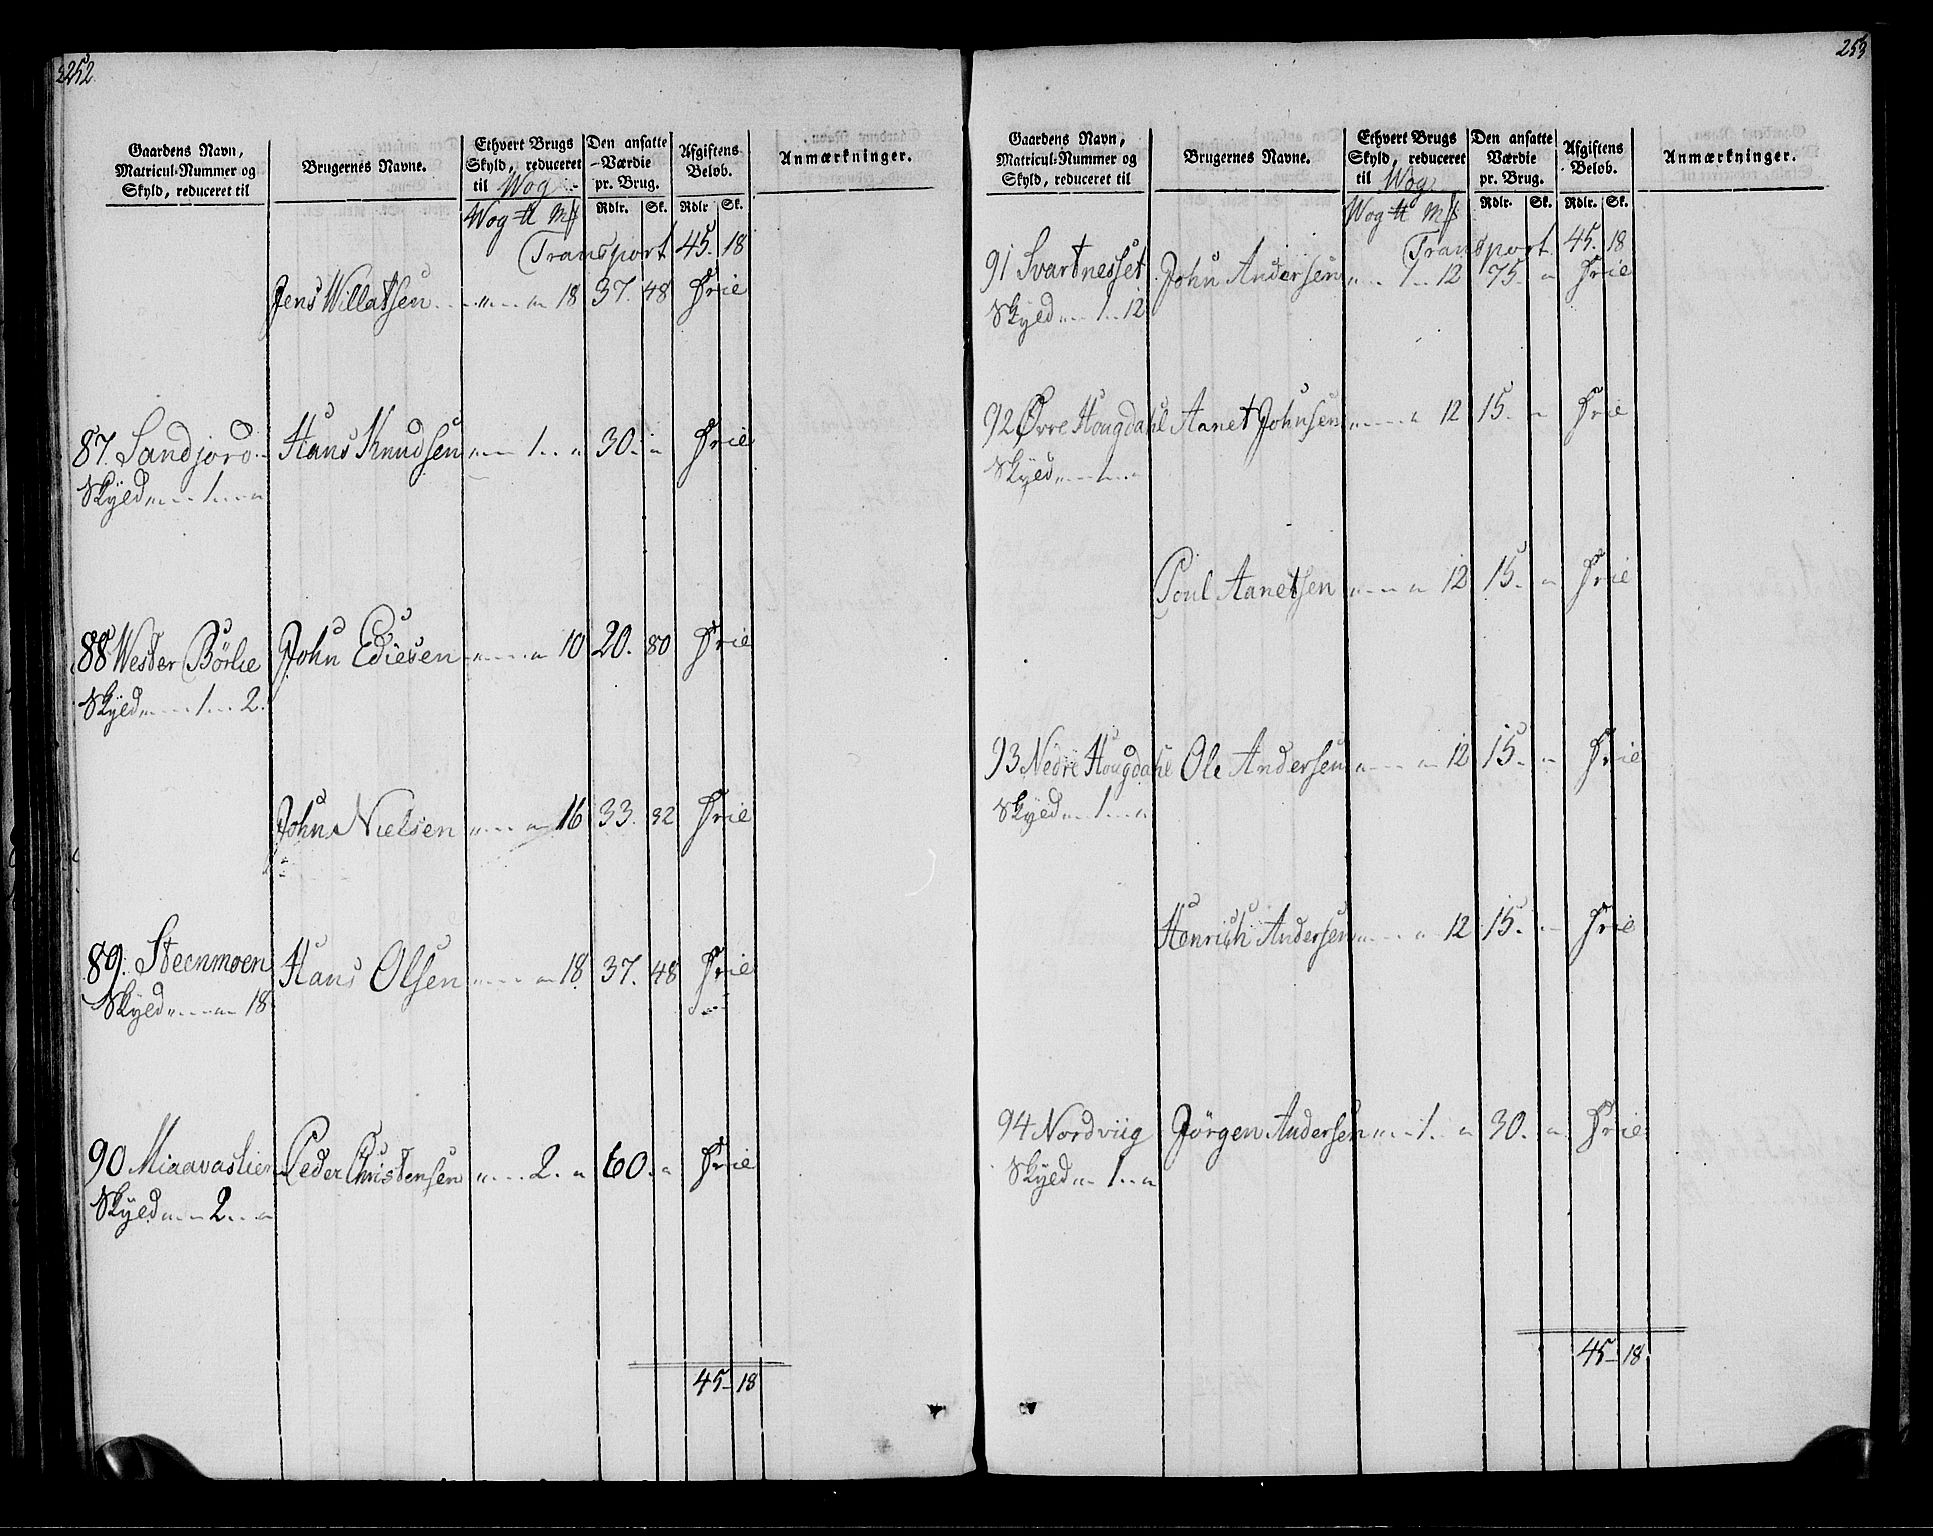 252
Gaardens Navn,
Matricul-Nummer og
Skyld, reduceret til
Brugernes Navne.
Ethvert Brugs
Skyld, reduceret
til Wog
Den ansatte
Værdie
pr. Brug.
Afgiftens
Beløb.
Anmærkninger.
Wog ℔ M𝔨
Rdlr. Sk. Rdlr Sk.
Transport 45. 18
Jens Willatsen " " 18 37. 48 Frie
87. Sandjord Hans Knudsen " 1 " 30. " Frie
Skyld " 1 "
88 Wester Börlie John Ediesen " " 10 20. 80 Frie
Skyld " 1 " 2.
John Nielsen " " 16 33. 32 Frie
89. Steenmoen Hans Olsen " " 18 37. 48 Frie
Skyld " " 18
90 Miaavaslien Peder Christensen " 2. " 60. " Frie
Skyld " 2 "
45 18
253
Gaardens Navn,
Matricul-Nummer og
Skyld, reduceret til
Brugernes Navne.
Ethvert Brugs
Skyld, reduceret
til Wog
Den ansatte
Værdie
pr. Brug.
Afgiftens
Beløb.
Anmærkninger.
Wog ℔ M𝔨
Rdlr. Sk. Rdlr. Sk.
Transport 45. 18
91 Svartnesset John Andersen " 1 12 75. " Frie
Skyld " 1 12
92 Øvre Hougdahl Aanet Johnsen " " 12 15. " Frie
Skyld " 1 "
Poul Aanetsen " " 12 15. " Frie
93 Nedre Hougdahl Ole Andersen " " 12 15. " Frie
Skyld " 1 "
Henrich Andersen " " 12 15. " Frie
94 Nordviig Jörgen Andersen " 1. " 30. " Frie
Skyld " 1 "
45 18